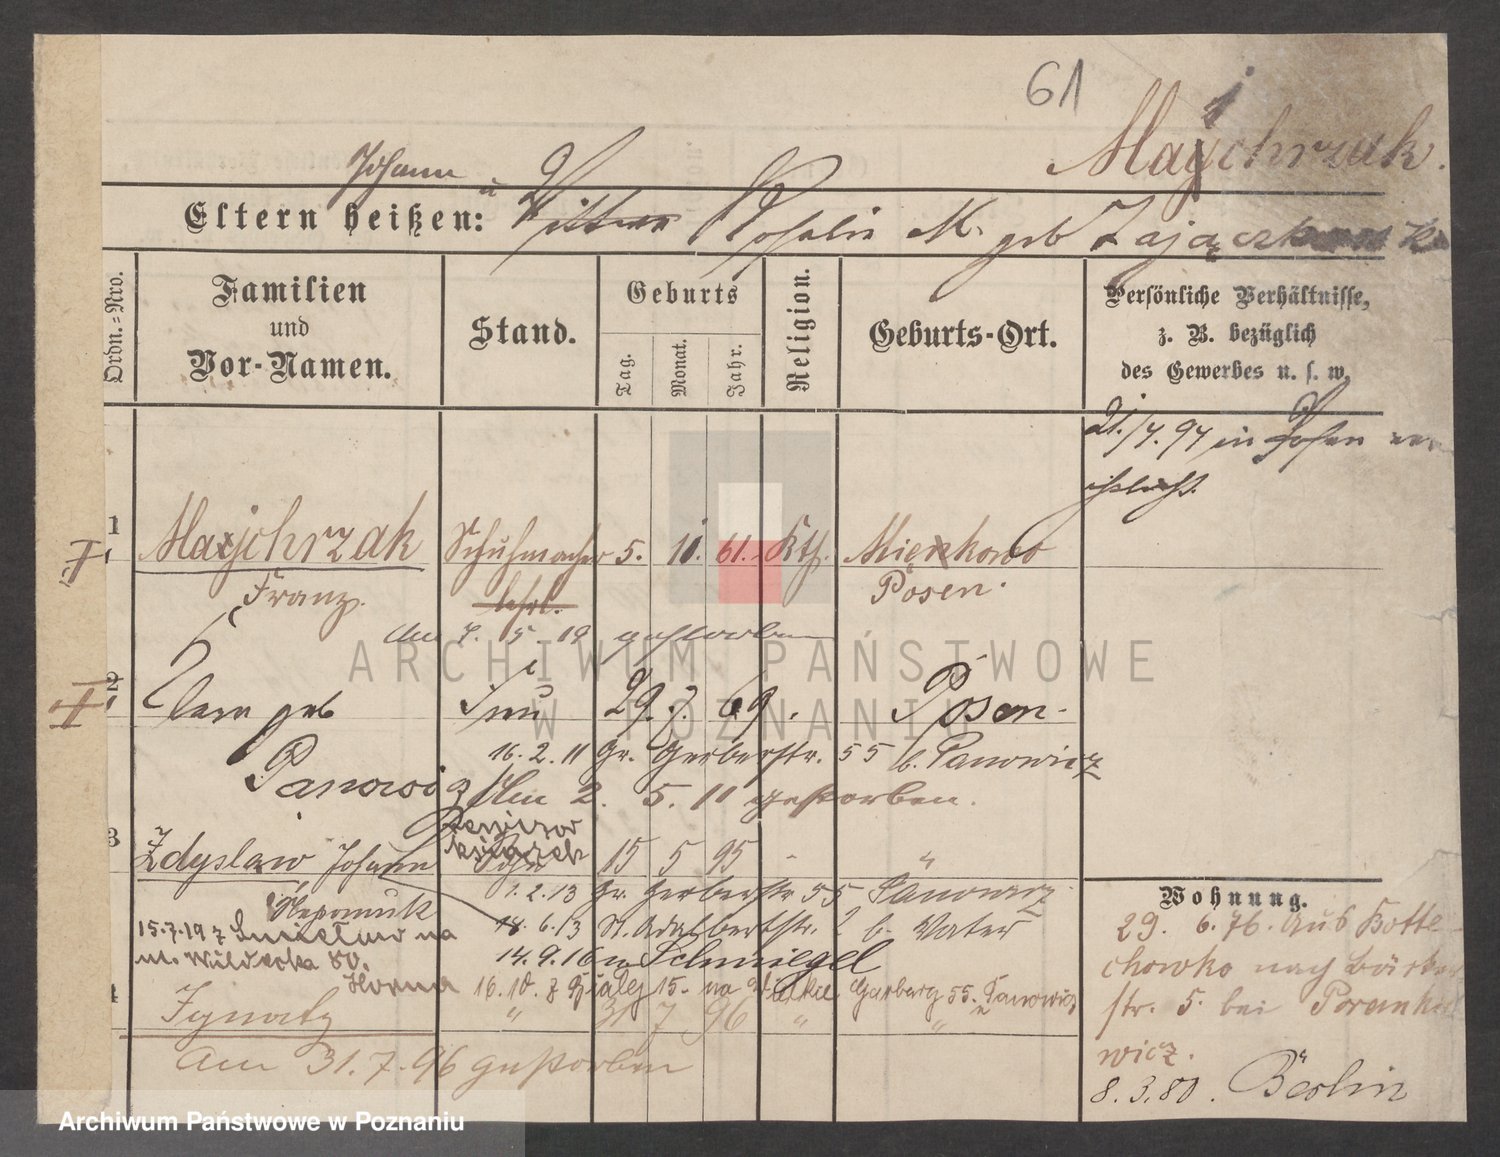 61
Majchrzak.
Johann u
Eltern heißen: Rosalie M. geb Zajączk
Ordn.=Nro.
Familien
und
Vor-Namen.
Stand.
Geburts
Tag.
Monat.
Jahr.
Religion.
Geburts-Ort.
Persönliche Verhältnisse,
z. B. bezüglich
des Gewerbes u. s. w.
21./7.97 in Posen
1 Majchrzak Schuhmacher 5. 10. 61. Kth.
Franz. lehrl. Posen.
Am 7. 5. 19 gestorben
2 Clara geb Frau 29. 7. 69. Posen.
16. 2. 11 Gr. Gerberstr. 55 b. Panowicz
Panowicz Am 2. 5. 11 gestorben.
Rewizor
książek
3 Zdyslaw Johann Sohn 15 5 95 " "
1. 2. 13 Gr. Gerberstr 55 Panowicz
Nepomuk 18. 6. 13 St. Adalbertstr. 2 b. Vater
15.7.19 z na 14. 9. 16 n Schmiegel
ul. Wildecka 80.
Horna 16. 10. z 15. na Wielkie Garbary 55. Panowicz
4 Ignatz " 31 7 96 " "
Am 31. 7. 96 gestorben
Wohnung.
29. 6. 76. Aus Kotte-
chowko nach Bäcker
str. 5. bei
wicz.
8. 3. 80. Berlin
ARCHIWUM PAŃSTWOWE
W POZNANIU
Archiwum Państwowe w Poznaniu